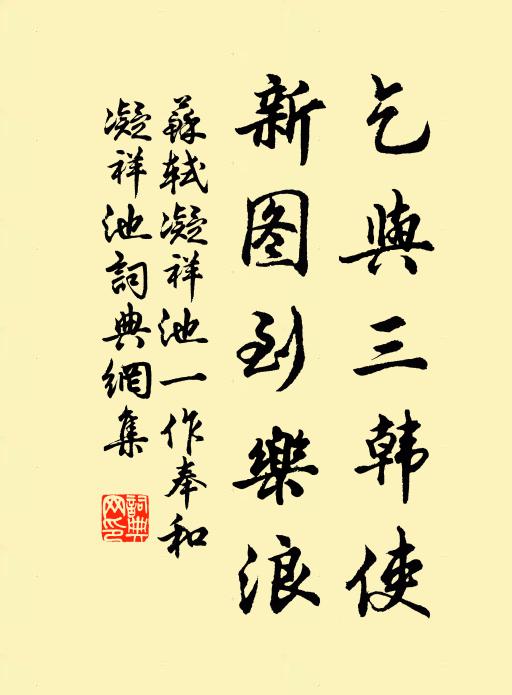 乞與三韓使
新图到樂浪
蘇軾凝祥池一作奉和
凝祥池詞典網集
詞典
网印